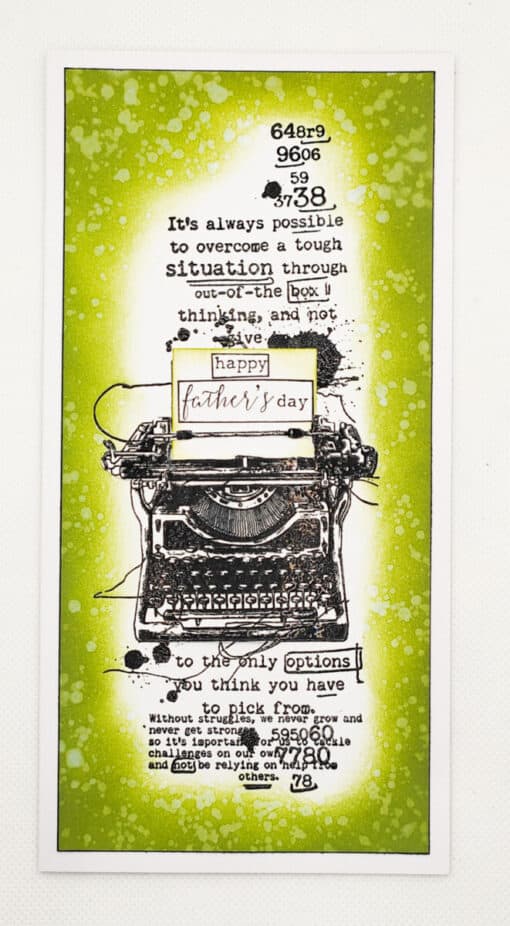 648r9
9606
59
3738
It's always possible
to overcome a tough
situation through
out-of-the box
thinking, and not
give
happy
father's day
to the only options
you think you have
to pick from.
Without struggles, we never grow and
never get stronger
595060
so it's important for us to tackle
challenges on our own
7780
and not be relying on help from
others.
78